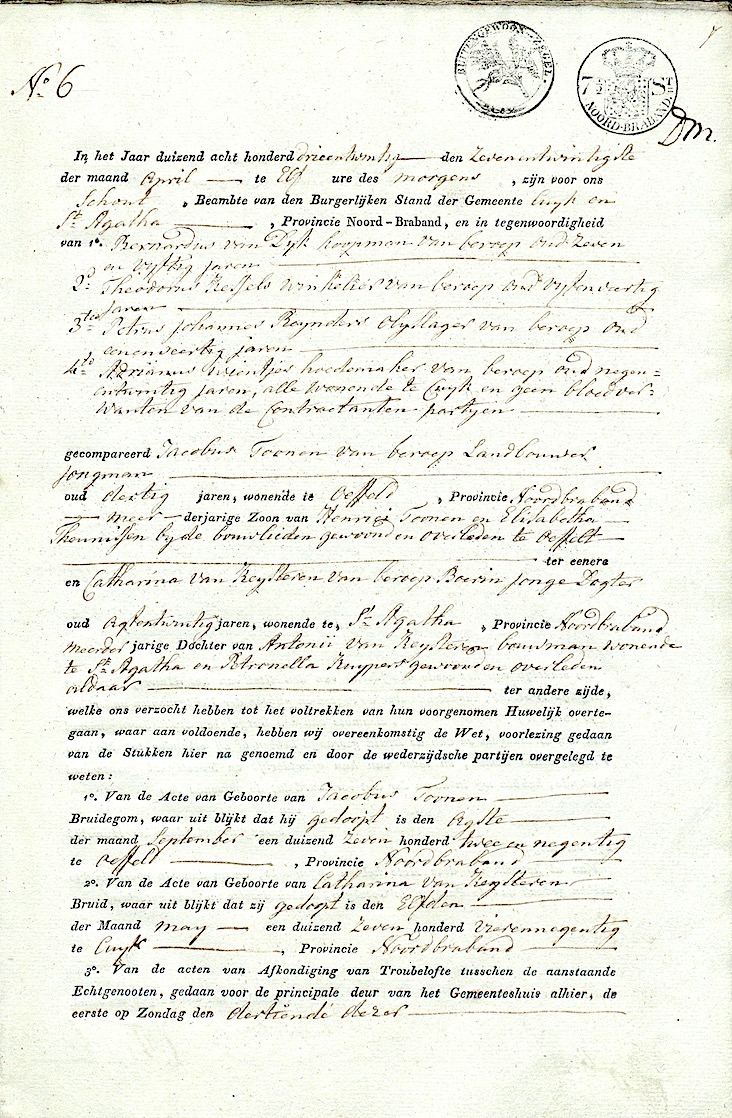 7
No 6
BUITENGEWOON ZEGEL.
7 ST
NOORD-BRABAND.
In het Jaar duizend acht honderd drieentwintig den Zevenentwintigste
der maand April te Elf ure des morgens , zijn voor ons
Schout , Beambte van den Burgerlijken Stand der Gemeente Cuyk en
St Agatha , Provincie Noord-Braband, en in tegenwoordigheid
van 1o. Bernardus van Dyk koopman van beroep oud Zeven
en vyftig jaren
2d Theodorus Kessels winkelier van beroep oud vyfenveertig
jaren
3de Petrus Johannes Reynders Olyslager van beroep oud
eenenveertig jaren
4de Adrianus Wientjes hoedemaker van beroep oud negen=
entwintig jaren, alle wonende te Cuyk en geen bloedver=
wanten van de Contractanten partyen
gecompareerd Jacobus Toonen van beroep Landbouwer
jongman
oud dertig jaren, wonende te Oeffeld , Provincie Noordbraband
meer derjarige Zoon van Henri Toonen en Elisabetha
Theunissen byde bouwlieden gewoond en overleden te Oeffelt
ter eenere
en Catharina van Keysteren van beroep Boerin jonge Dogter
oud Agtentwintig jaren, wonende te, St Agatha , Provincie Noordbraband
meerder jarige Dochter van Antonii van Keysteren bouwman wonende
te St Agatha en Petronella Kuypers gewoond en overleden
aldaar ter andere zijde,
welke ons verzocht hebben tot het voltrekken van hun voorgenomen Huwelijk overte-
gaan, waar aan voldoende, hebben wij overeenkomstig de Wet, voorlezing gedaan
van de Stukken hier na genoemd en door de wederzijdsche partijen overgelegd te
weten:
1o. Van de Acte van Geboorte van Jacobus Toonen
Bruidegom, waar uit blijkt dat hij gedoopt is den Agste
der maand September een duizend Zeven honderd twee en negentig
te Oeffelt , Provincie Noordbraband
2o. Van de Acte van Geboorte van Catharina van Keysteren
Bruid, waar uit blijkt dat zij gedoopt is den Elfden
der Maand may een duizend Zeven honderd Vierennegentig
te Cuyk , Provincie Noordbraband
3o. Van de acten van Afkondiging van Troubelofte tusschen de aanstaande
Echtgenooten, gedaan voor de principale deur van het Gemeenteshuis alhier, de
eerste op Zondag den dertiende dezer